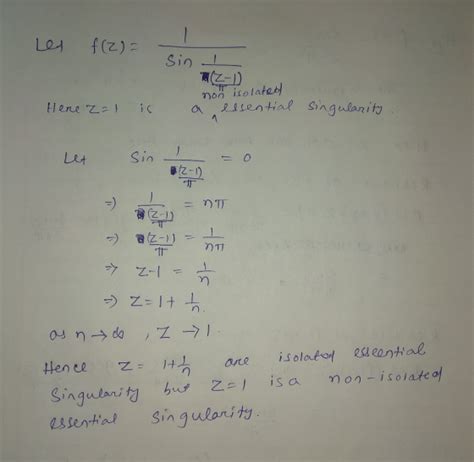 Let f(z) = 1 / Sin 1/((z-1)/π)
Here z=1 is a non isolated essential singularity.
Let Sin 1/((z-1)/π) = 0
⇒ 1/((z-1)/π) = nπ
⇒ (z-1)/π = 1/nπ
⇒ z-1 = 1/n
⇒ z = 1+ 1/n.
as n→∞, z→1.
Hence z = 1+1/n are isolated essential
Singularity but z=1 is a non-isolated
essential singularity.